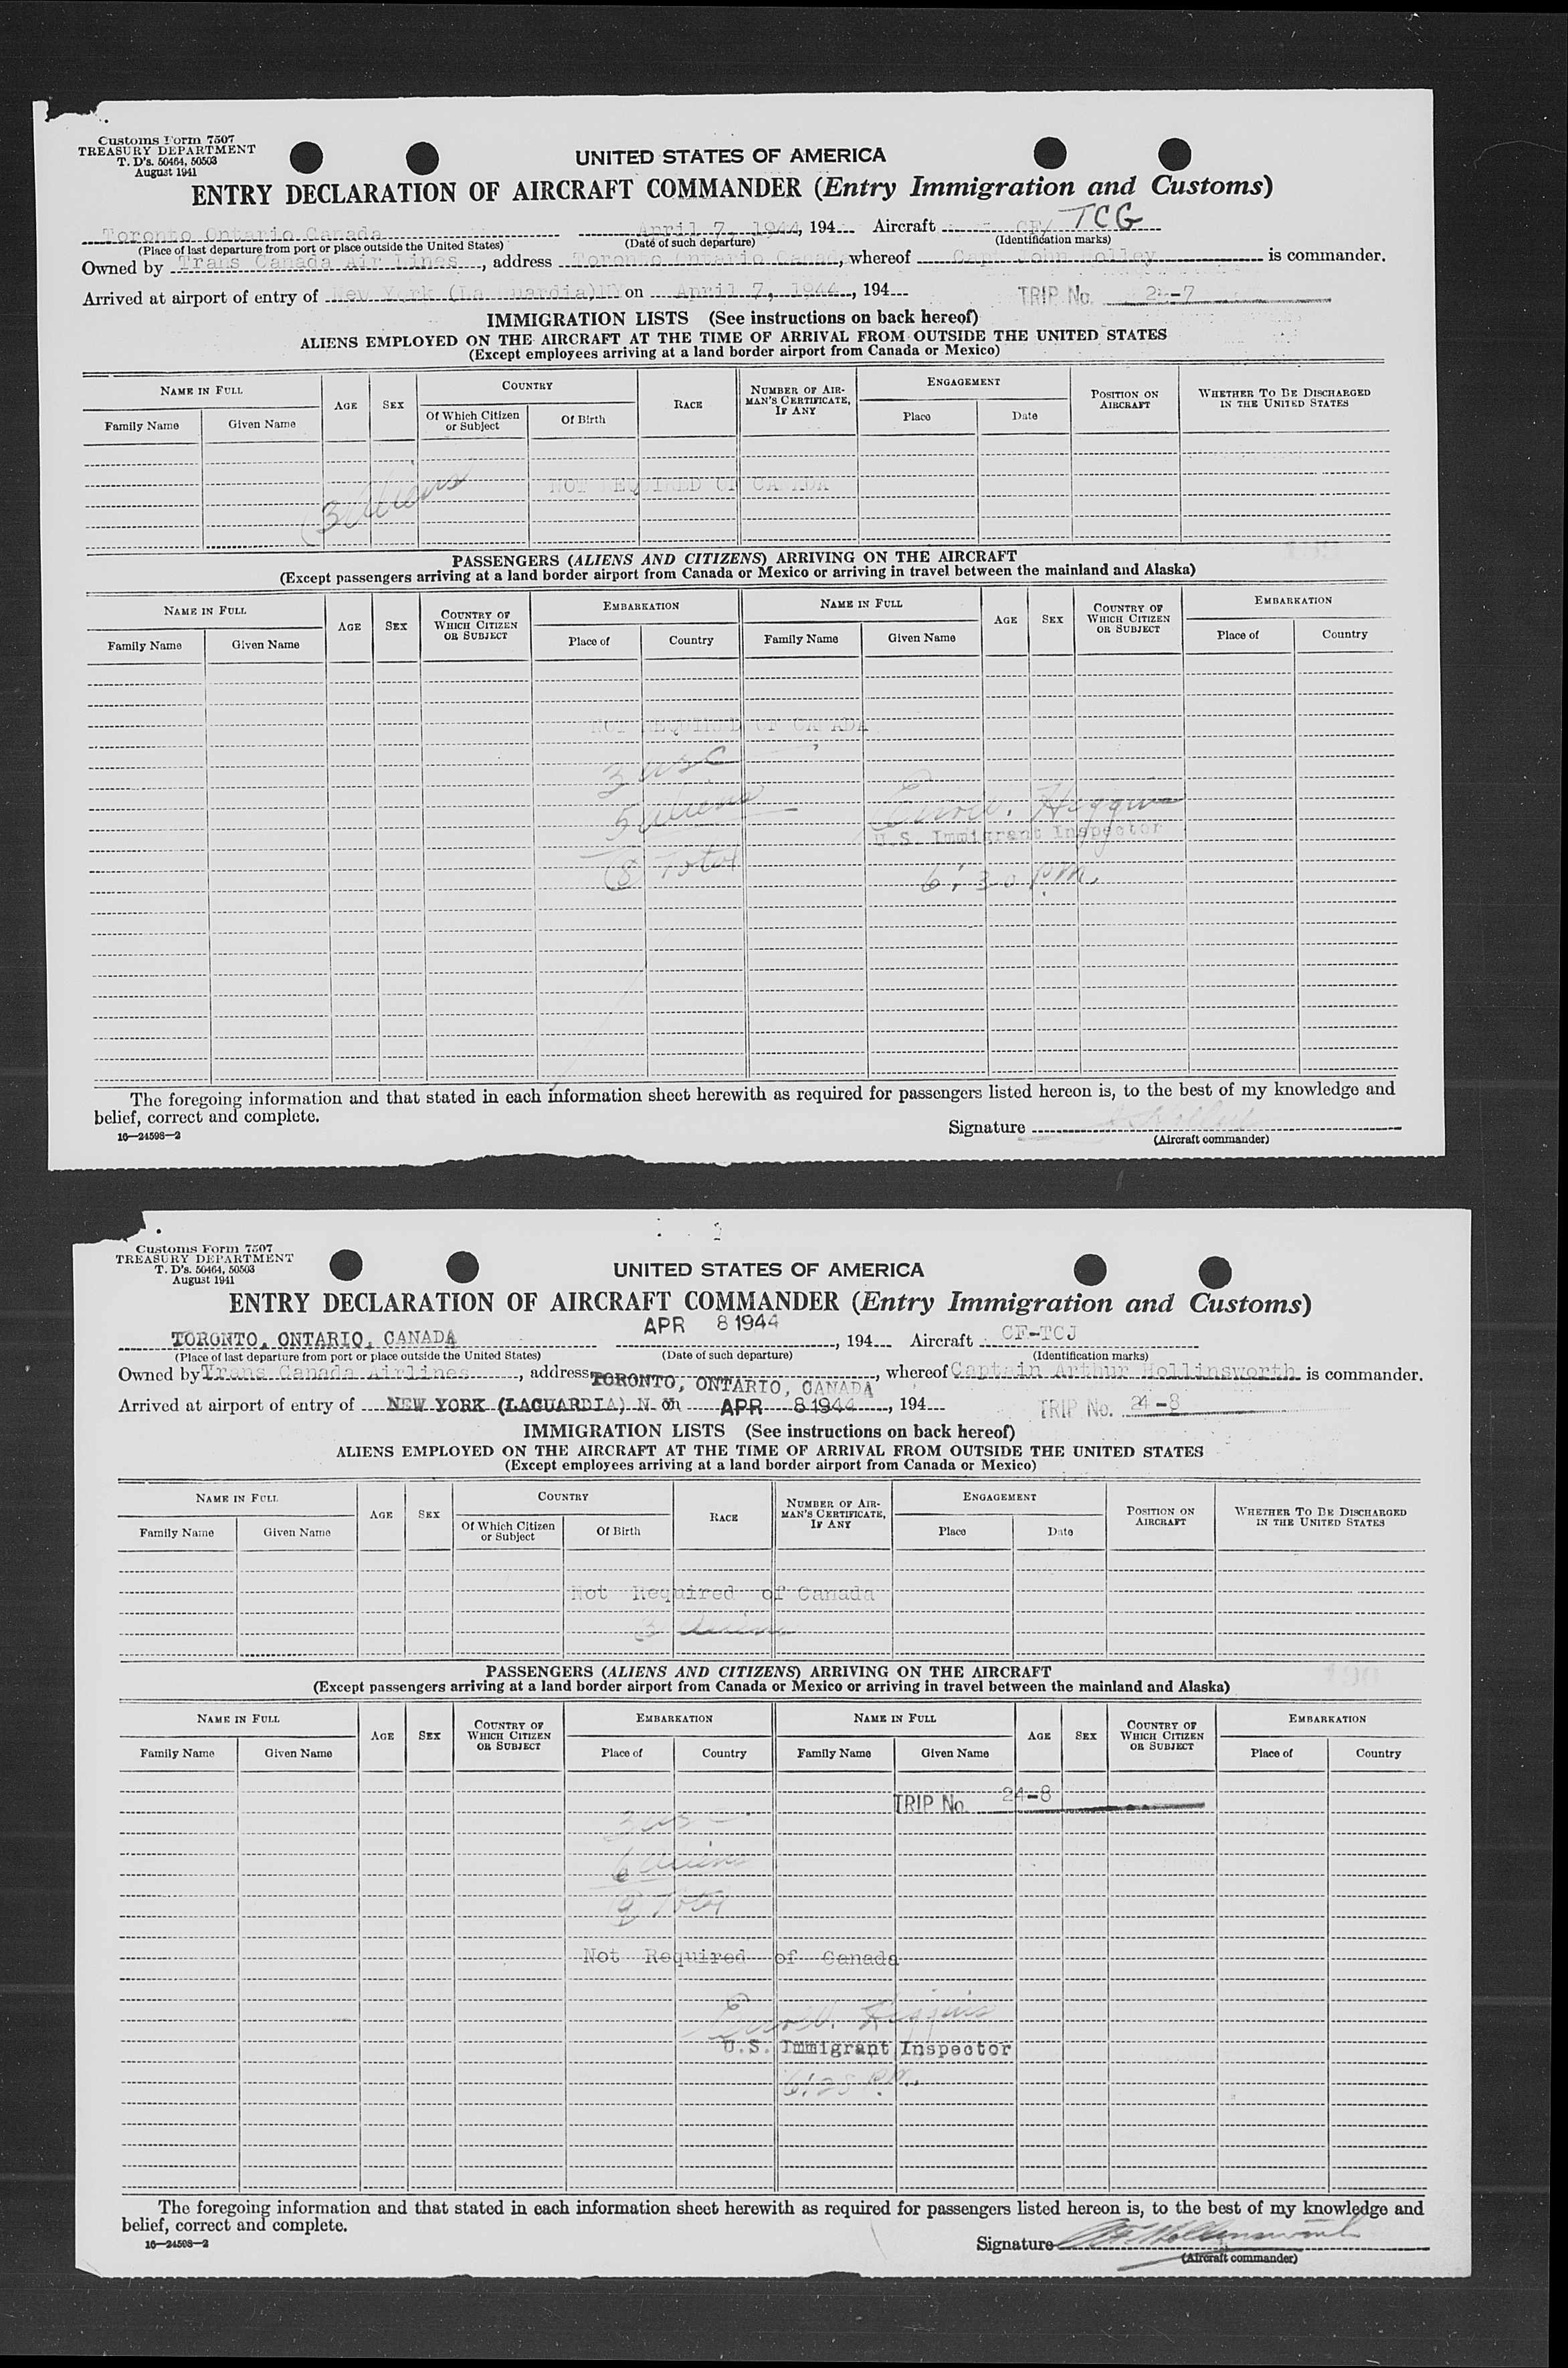 Customs Form 7507
TREASURY DEPARTMENT
T. D's. 50464, 50503
August 1941
UNITED STATES OF AMERICA
ENTRY DECLARATION OF AIRCRAFT COMMANDER (Entry Immigration and Customs)
Toronto Ontario Canada April 7, 1944, 194 Aircraft CF/ TCG
(Place of last departure from port or place outside the United States) (Date of such departure) (Identification marks)
Owned by Trans Canada Air Lines, address Toronto Ontario Canada, whereof Capt John is commander.
Arrived at airport of entry of New York (La Guardia) NY on April 7, 1944, 194 TRIP No. -7
IMMIGRATION LISTS (See instructions on back hereof)
ALIENS EMPLOYED ON THE AIRCRAFT AT THE TIME OF ARRIVAL FROM OUTSIDE THE UNITED STATES
(Except employees arriving at a land border airport from Canada or Mexico)
NAME IN FULL AGE SEX COUNTRY RACE NUMBER OF AIRMAN'S CERTIFICATE, IF ANY ENGAGEMENT POSITION ON AIRCRAFT WHETHER TO BE DISCHARGED IN THE UNITED STATES
Family Name Given Name Of Which Citizen or Subject Of Birth Place Date
3 Aliens NOT REQUIRED OF CANADA
PASSENGERS (ALIENS AND CITIZENS) ARRIVING ON THE AIRCRAFT
(Except passengers arriving at a land border airport from Canada or Mexico or arriving in travel between the mainland and Alaska)
NAME IN FULL AGE SEX COUNTRY OF WHICH CITIZEN OR SUBJECT EMBARKATION NAME IN FULL AGE SEX COUNTRY OF WHICH CITIZEN OR SUBJECT EMBARKATION
Family Name Given Name Place of Country Family Name Given Name Place of Country
NOT REQUIRED OF CANADA
3 usc
5 Aliens Higgins
U.S. Immigrant Inspector
8 Total 6:30 P.M.
The foregoing information and that stated in each information sheet herewith as required for passengers listed hereon is, to the best of my knowledge and
belief, correct and complete.
16—24598—2
Signature
(Aircraft commander)
Customs Form 7507
TREASURY DEPARTMENT
T. D's. 50464, 50503
August 1941
UNITED STATES OF AMERICA
ENTRY DECLARATION OF AIRCRAFT COMMANDER (Entry Immigration and Customs)
TORONTO, ONTARIO, CANADA APR 8 1944, 194 Aircraft CF-TCJ
(Place of last departure from port or place outside the United States) (Date of such departure) (Identification marks)
Owned by Trans Canada Airlines, address TORONTO, ONTARIO, CANADA, whereof Captain Arthur Hollinsworth is commander.
Arrived at airport of entry of NEW YORK (LAGUARDIA) N. on APR 8 1944, 194 TRIP No. 24-8
IMMIGRATION LISTS (See instructions on back hereof)
ALIENS EMPLOYED ON THE AIRCRAFT AT THE TIME OF ARRIVAL FROM OUTSIDE THE UNITED STATES
(Except employees arriving at a land border airport from Canada or Mexico)
NAME IN FULL AGE SEX COUNTRY RACE NUMBER OF AIRMAN'S CERTIFICATE, IF ANY ENGAGEMENT POSITION ON AIRCRAFT WHETHER TO BE DISCHARGED IN THE UNITED STATES
Family Name Given Name Of Which Citizen or Subject Of Birth Place Date
Not Required of Canada
3 Aliens
PASSENGERS (ALIENS AND CITIZENS) ARRIVING ON THE AIRCRAFT
(Except passengers arriving at a land border airport from Canada or Mexico or arriving in travel between the mainland and Alaska)
NAME IN FULL AGE SEX COUNTRY OF WHICH CITIZEN OR SUBJECT EMBARKATION NAME IN FULL AGE SEX COUNTRY OF WHICH CITIZEN OR SUBJECT EMBARKATION
Family Name Given Name Place of Country Family Name Given Name Place of Country
TRIP No. 24-8
3 usc
6 Aliens
9 Total
Not Required of Canada
Higgins
U.S. Immigrant Inspector
6:28 P.M.
The foregoing information and that stated in each information sheet herewith as required for passengers listed hereon is, to the best of my knowledge and
belief, correct and complete.
16—24598—2
Signature Hollinsworth
(Aircraft commander)